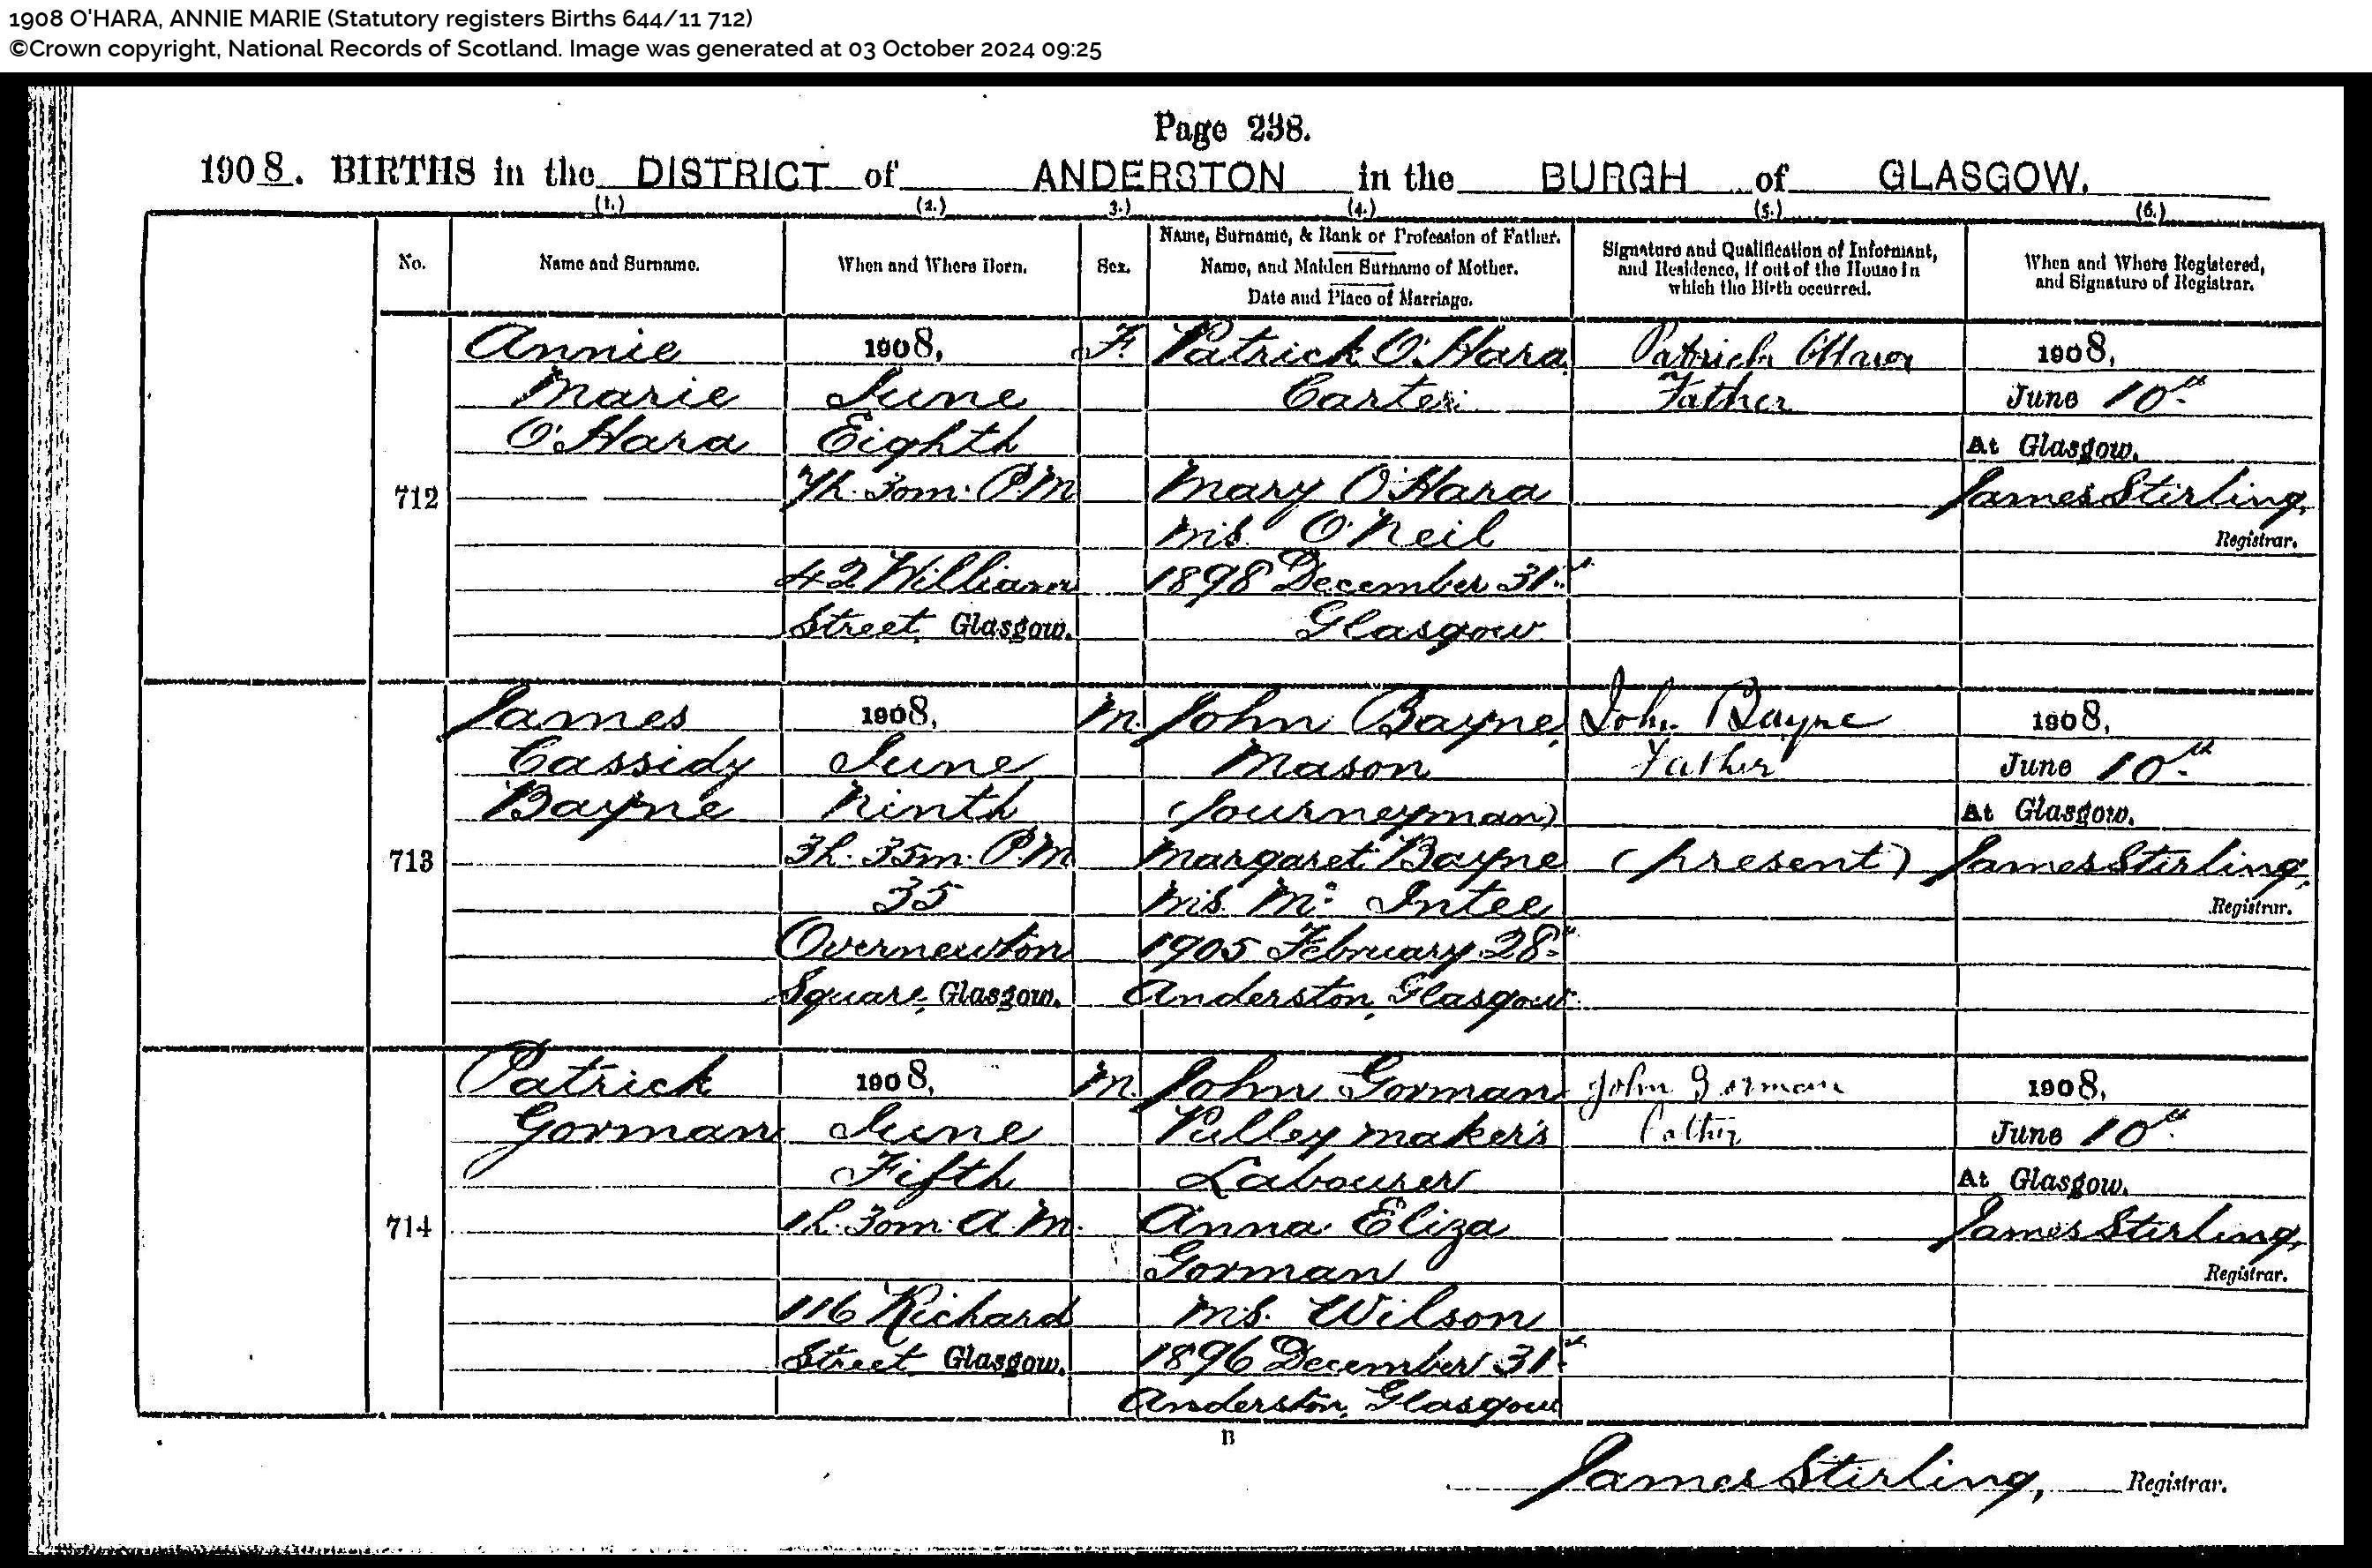 1908 O'HARA, ANNIE MARIE (Statutory registers Births 644/11 712)
©Crown copyright, National Records of Scotland. Image was generated at 03 October 2024 09:25
Page 238.
1908. BIRTHS in the DISTRICT of ANDERSTON in the BURGH of GLASGOW.
(1.) (2.) 3.) (4.) (5.) (6.)
No.
Name and Surname.
When and Where Born.
Sex.
Name, Surname, & Rank or Profession of Father.
Name, and Maiden Surname of Mother.
Date and Place of Marriage.
Signature and Qualification of Informant,
and Residence, if out of the House in
which the Birth occurred.
When and Where Registered,
and Signature of Registrar.
712
Annie
Marie
O'Hara
1908,
June
Eighth
7h. 30m. P.M
42 William
Street, Glasgow.
F.
Patrick O'Hara
Carter
Mary O'Hara
M.S. O'Neil
1898 December 31st
Glasgow
Patrick O'Hara
Father
1908,
June 10th
At Glasgow.
James Stirling,
Registrar.
713
James
Cassidy
Bayne
1908,
June
Ninth
3h. 35m. P.M
35
Overnewton
Square, Glasgow.
M.
John Bayne,
Mason
(Journeyman)
Margaret Bayne
M.S. Mc Intee
1905 February 28th
Anderston, Glasgow
John Bayne
Father
(present)
1908,
June 10th
At Glasgow.
James Stirling,
Registrar.
714
Patrick
Gorman
1908,
June
Fifth
1h. 30m. A.M.
116 Richard
Street, Glasgow.
M.
John Gorman
Pulley maker's
Labourer
Anna Eliza
Gorman
M.S. Wilson
1896 December 31st
Anderston, Glasgow
John Gorman
Father
1908,
June 10th
At Glasgow.
James Stirling,
Registrar.
B
James Stirling, Registrar.